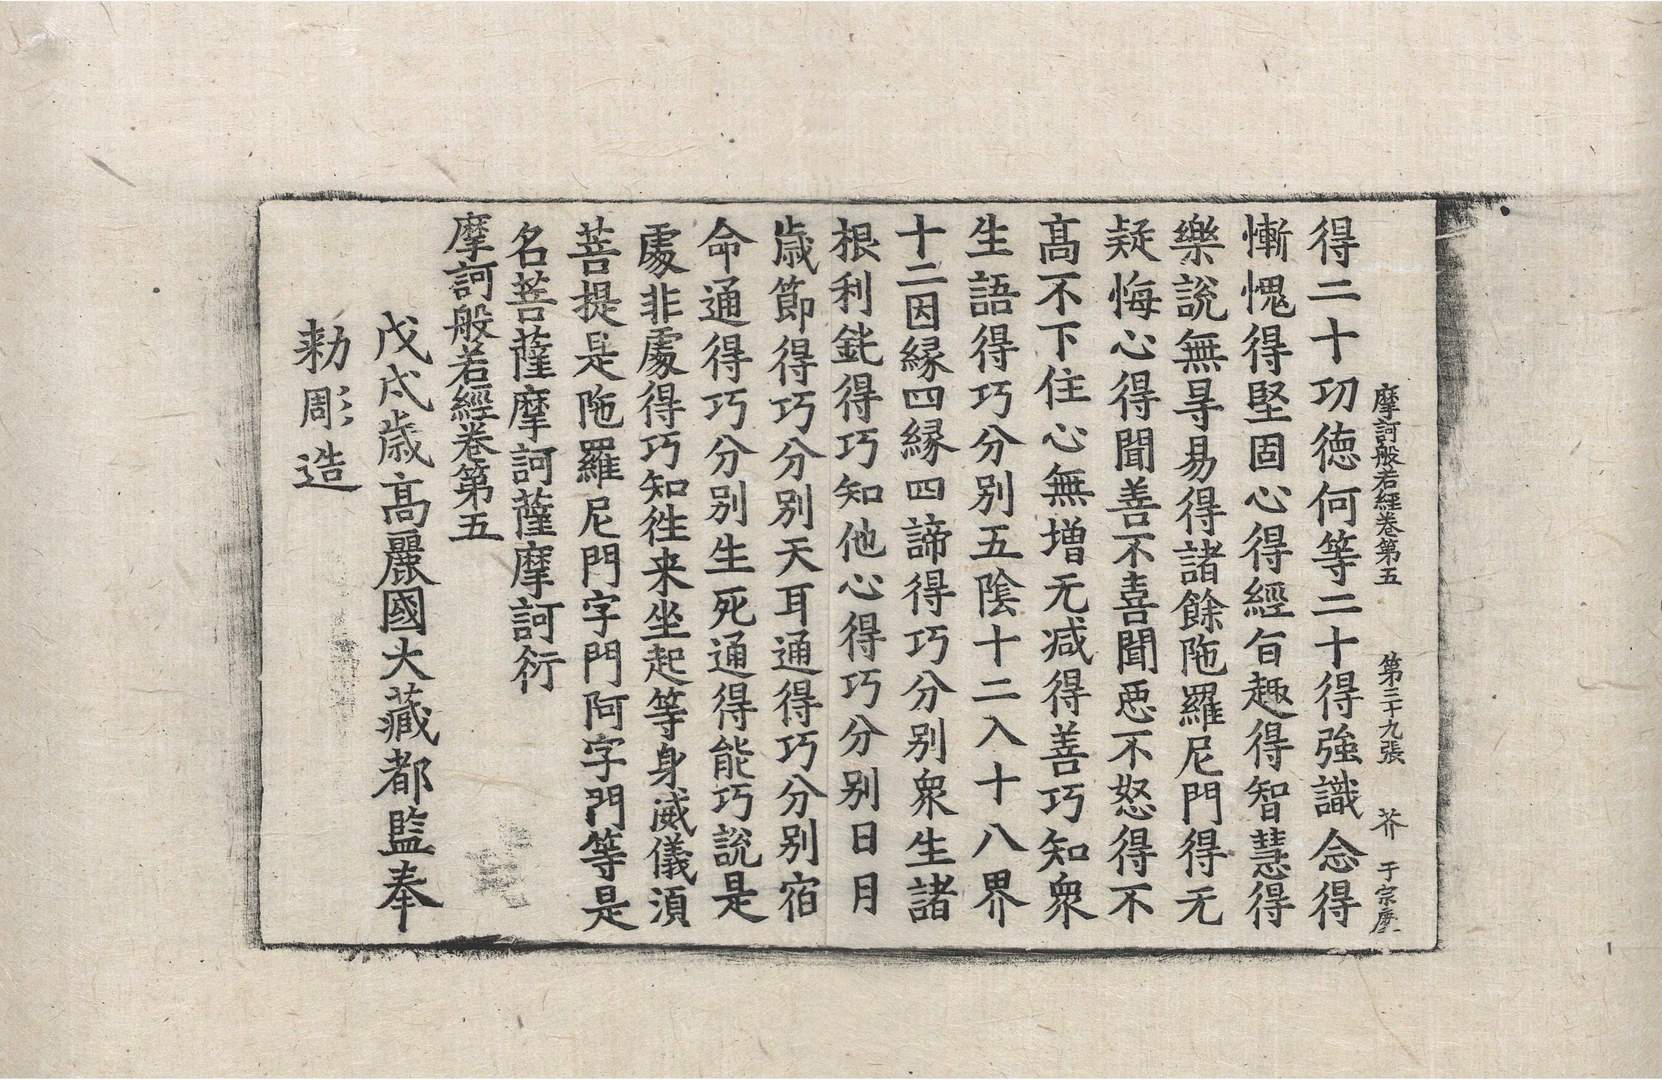 摩訶般若經卷第五 第三十九張 芥 于宗慶
得二十功德何等二十得強識念得
慚愧得堅固心得經旨趣得智慧得
樂說無㝵易得諸餘陁羅尼門得无
疑悔心得聞善不喜聞惡不怒得不
髙不下住心無增无减得善巧知衆
生語得巧分別五陰十二入十八界
十二因緣四緣四諦得巧分別衆生諸
根利鈍得巧知他心得巧分別日月
歲節得巧分別天耳通得巧分別宿
命通得巧分別生死通得能巧說是
處非處得巧知徃来坐起等身威儀湏
菩提是陁羅尼門字門阿字門等是
名菩薩摩訶薩摩訶衍
摩訶般若經卷第五
戊戌歲髙麗國大藏都監奉
勑彫造